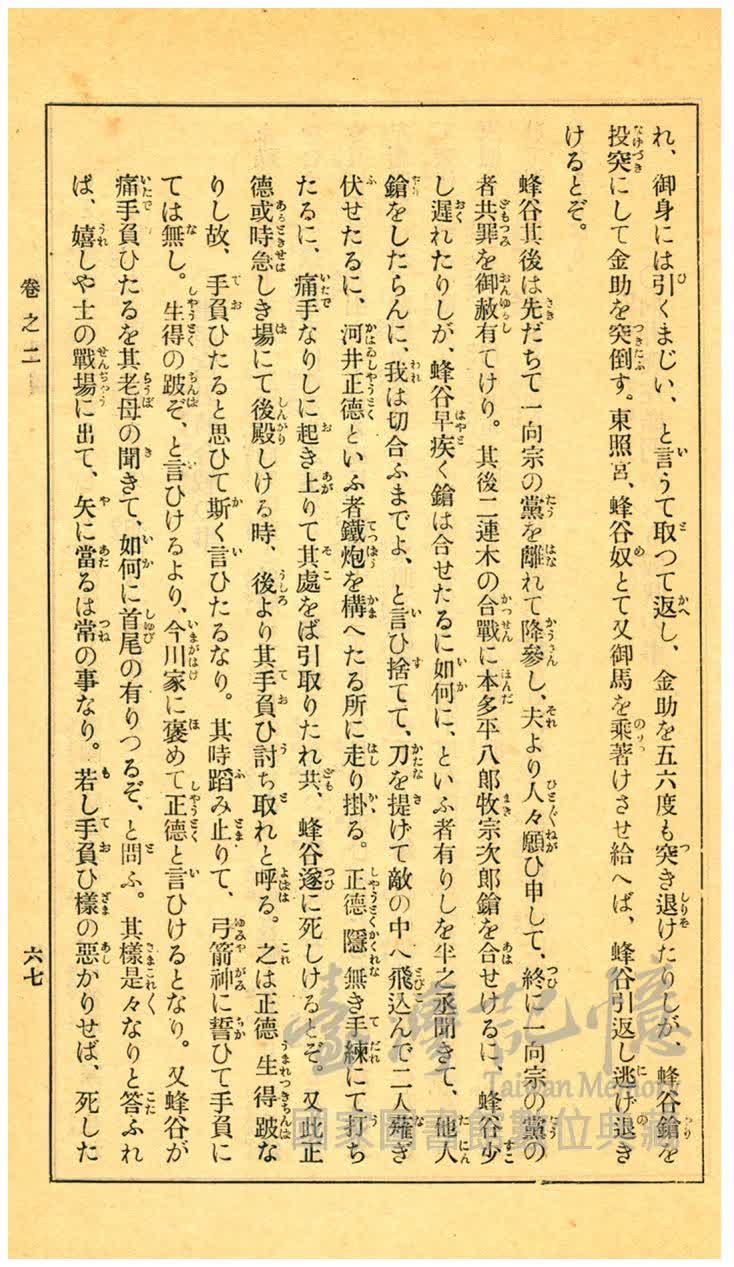 れ、御身には引くまじい、と言うて取つて返し、金助を五六度も突き退けたりしが、蜂谷鎗を
投突にして金助を突倒す。東照宮、蜂谷奴とて又御馬を乘著けさせ給へば、蜂谷引返し逃げ退き
けるとぞ。
蜂谷其後は先だちて一向宗の黨を離れて降參し、夫より人々願ひ申して、終に一向宗の黨の
者共罪を御赦有てけり。其後二連木の合戰に本多平八郎牧宗次郎鎗を合せけるに、蜂谷少
し遲れたりしが、蜂谷早疾く鎗は合せたるに如何に、といふ者有りしを半之丞聞きて、他人
鎗をしたらんに、我は切合ふまでよ、と言ひ捨てて、刀を提げて敵の中へ飛込んで二人薙ぎ
伏せたるに、河井正德といふ者鐵炮を構へたる所に走り掛る。正德隱無き手練にて打ち
たるに、痛手なりしに起き上りて其處をば引取りたれ共、蜂谷遂に死しけるとぞ。又此正
德或時急しき場にて後殿しける時、後より其手負ひ討ち取れと呼る。之は正德生得跛な
りし故、手負ひたると思ひて斯く言ひたるなり。其時蹈み止りて、弓箭神に誓ひて手負に
ては無し。生得の跛ぞ、と言ひけるより、今川家に褒めて正德と言ひけるとなり。又蜂谷が
痛手負ひたるを其老母の聞きて、如何に首尾の有りつるぞ、と問ふ。其樣是々なりと答ふれ
ば、嬉しや士の戰場に出て、矢に當るは常の事なり。若し手負ひ樣の惡かりせば、死した
卷之二
六七
臺灣記憶
Taiwan Memory
國家圖書館數位典藏